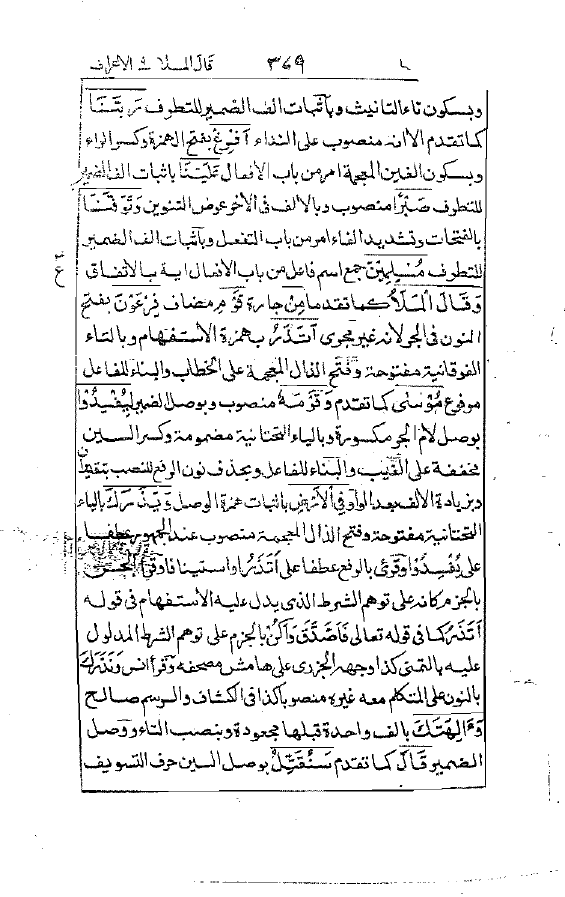 قال الملا ٩ الاعراف ٣٦٩
وبسكون تاء التانيث وباثبات الف الضمير للتطرف رَبَّنَا
كما تقدم الا انه منصوب على النداء أَفْرِغْ بفتح الهمزة وكسر الراء
وبسكون الغين المعجمة امر من باب الافعال عَلَيْنَا باثبات الف الضمير
للتطرف صَبْرًا منصوب وبالالف فى الاخر عوض التنوين وَتَوَفَّنَا
بالفتحات وتشديد الفاء امر من باب التفعل وباثبات الف الضمير
للتطرف مُسْلِمِينَ جمع اسم فاعل من باب الافعال اية بالاتفاق
وَقَالَ الْمَلَأُ كما تقدما مِنْ جارة قَوْمِ مضاف فِرْعَوْنَ بفتح
النون فى الجر لانه غير مجرى أَتَذَرُ بهمزة الاستفهام وبالتاء
الفوقانية مفتوحة وفتح الذال المعجمة على الخطاب والبناء للفاعل
مرفوع مُوسَى كما تقدم وَقَوْمَهُ منصوب وبوصل الضمير لِيُفْسِدُوا
بوصل لام الجر مكسورة وبالياء التحتانية مضمومة وكسر السين
مخففة على الغيب والبناء للفاعل وبحذف نون الرفع للنصب
وبزيادة الالف بعد الواو فِي الْأَرْضِ باثبات همزة الوصل وَيَذَرَكَ بالياء
التحتانية مفتوحة وفتح الذال المعجمة منصوب عند الجمهور عطفا
على يُفْسِدُوا وقرئ بالرفع عطفا على أَتَذَرُ او استينافا وقرأ الحسن
بالجزم كانه على توهم الشرط الذى يدل عليه الاستفهام فى قوله
أَتَذَرُ كما فى قوله تعالى فَأَصَّدَّقَ وَأَكُنْ بالجزم على توهم الشرط المدلول
عليه بالتمنى كذا وجهه الجزرى على هامش مصحفه وقرأ انس وَنَذَرَكَ
بالنون على المتكلم معه غيره منصوبا كذا فى الكشاف والرسم صالح
وَءَالِهَتَكَ بالف واحدة قبلها مجعودة وبنصب التاء ووصل
الضمير قَالَ كما تقدم سَنُقَتِّلُ بوصل السين حرف التسويف